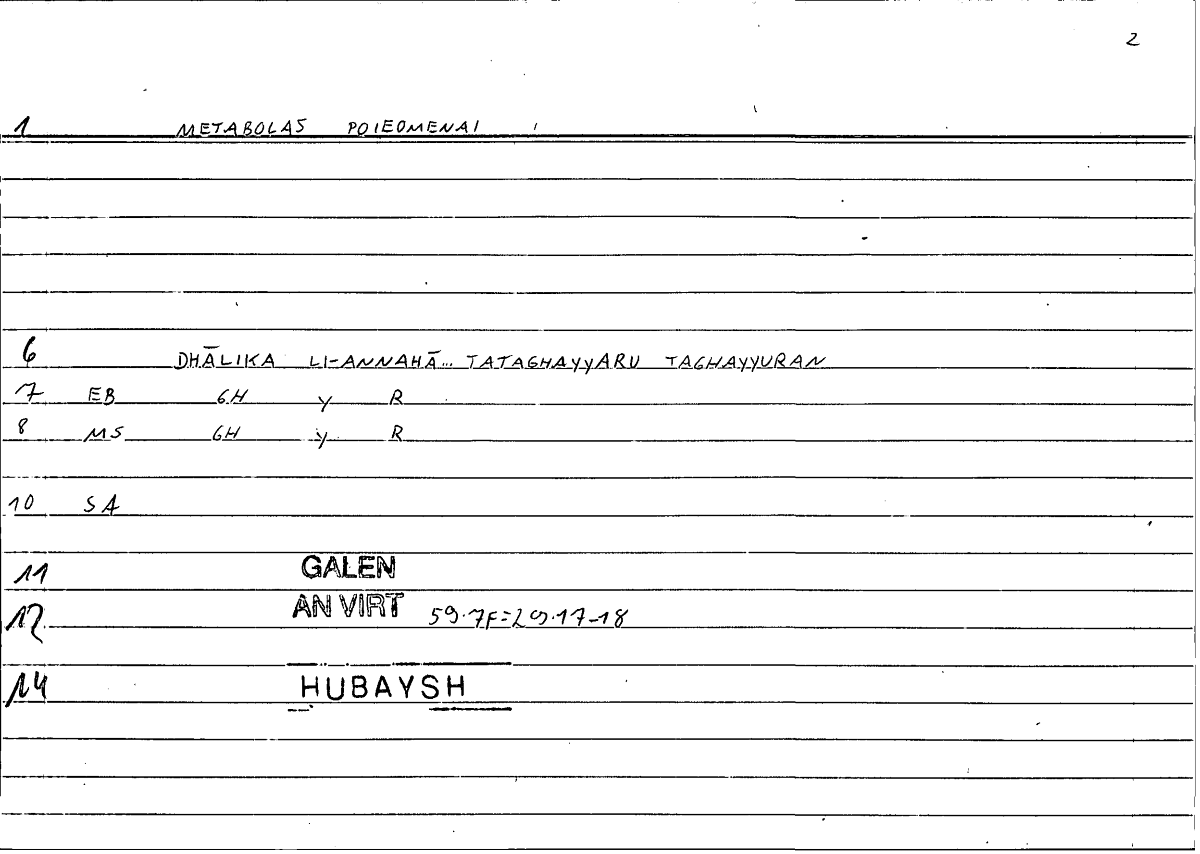 2
1 METABOLAS POIEOMENAI
6 DHĀLIKA LI-ANNAHĀ... TATAGHAYYARU TAGHAYYURAN
7 EB GH Y R
8 MS GH Y R
10 SA
11 GALEN
12 AN VIRT 59.7F=29.17-18
14 HUBAYSH